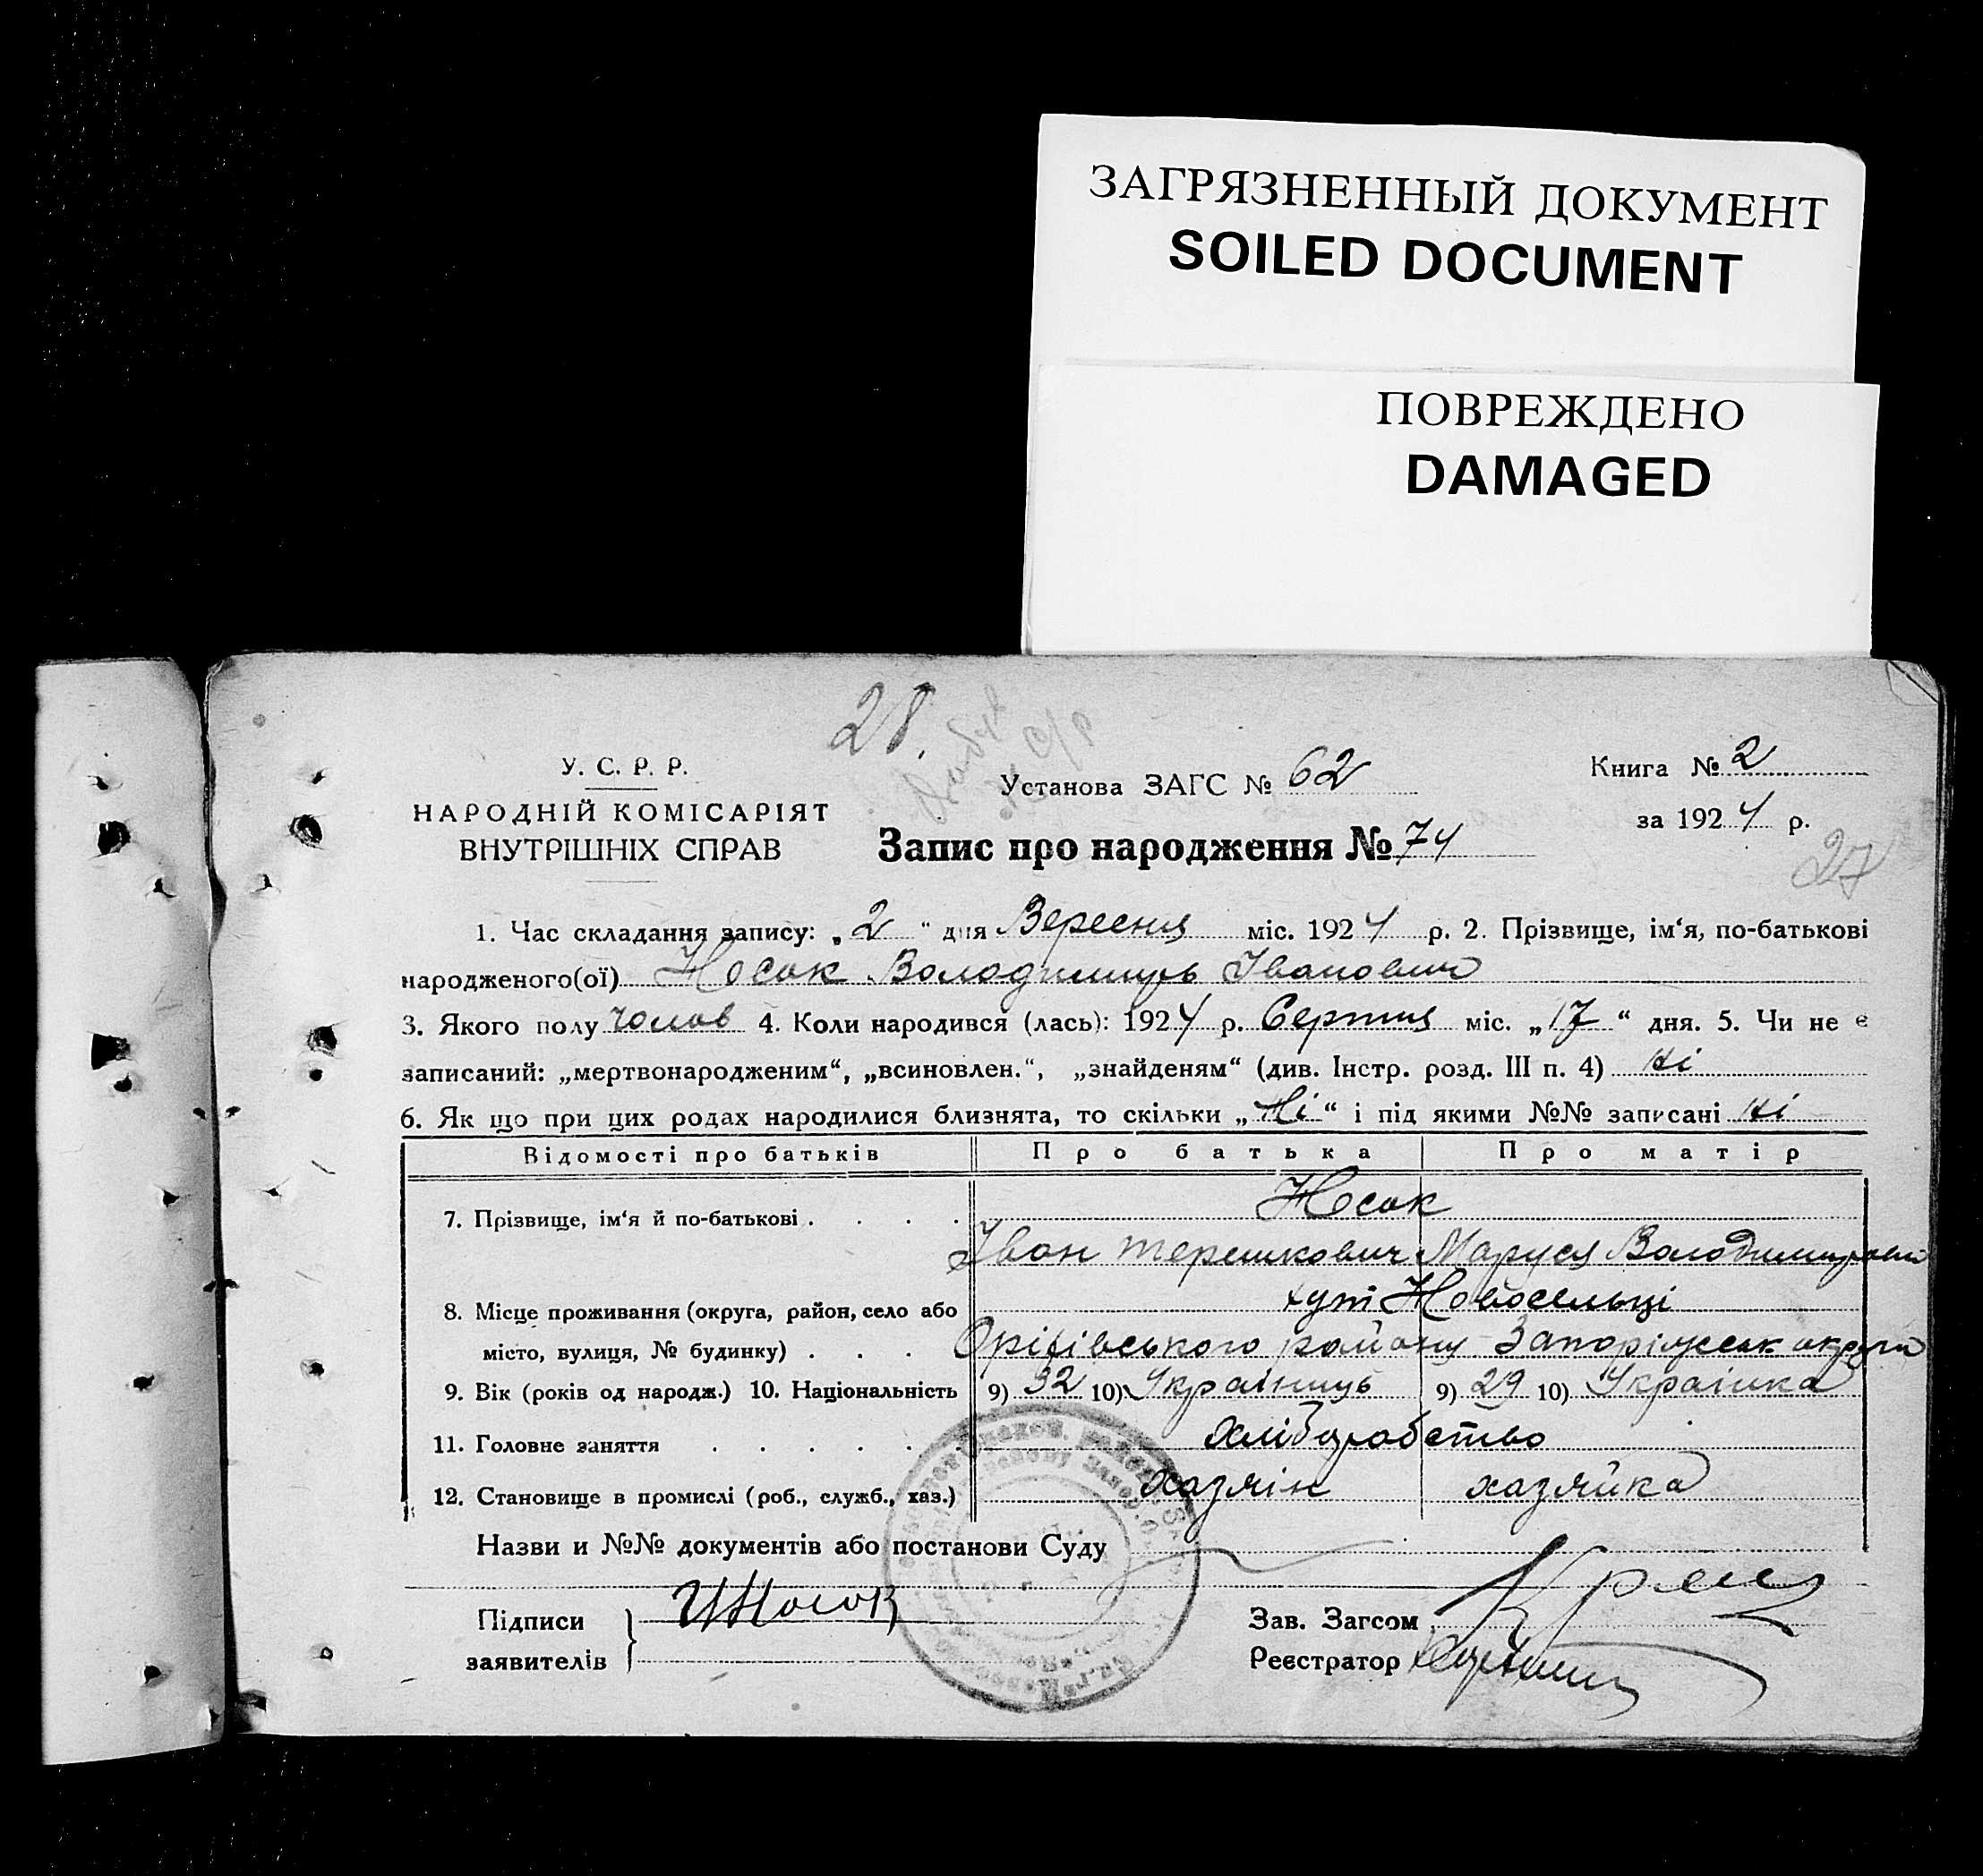 ЗАГРЯЗНЕННЫЙ ДОКУМЕНТ
SOILED DOCUMENT
ПОВРЕЖДЕНО
DAMAGED
28.
У. С. Р. Р.
НАРОДНІЙ КОМІСАРІЯТ
ВНУТРІШНІХ СПРАВ
Установа ЗАГС № 62
Книга № 2
за 1924 р.
27
Запис про народження № 74
1. Час складання запису: „2“ дня Вересня міс. 1924 р. 2. Прізвище, ім‘я, по-батькові
народженого(ої) Носак Володимиръ Іванович
3. Якого полу чолов 4. Коли народився (лась): 1924 р. Серпня міс. „17“ дня. 5. Чи не є
записаний: „мертвонародженим“, „всиновлен.“, „знайденям“ (див. Інстр. розд. III п. 4) Ні
6. Як що при цих родах народилися близнята, то скільки „Ні“ і під якими №№ записані Ні
Відомості про батьків Про батька Про матір
7. Прізвище, ім‘я й по-батькові . . . . Носак
Іван Терешкович Маруся Володимировна
8. Місце проживання (округа, район, село або хут Новосельці
місто, вулиця, № будинку) . . . Оріхівського району Запоріжськ округи
9. Вік (років од народж.) 10. Національність 9) 32 10) Українець 9) 29 10) Українка
11. Головне заняття . . . . . хліборобство
12. Становище в промислі (роб., служб., хаз.) хазяін хазяйка
Назви и №№ документів або постанови Суду
Підписи И Носак
заявителів
Зав. Загсом
Реєстратор